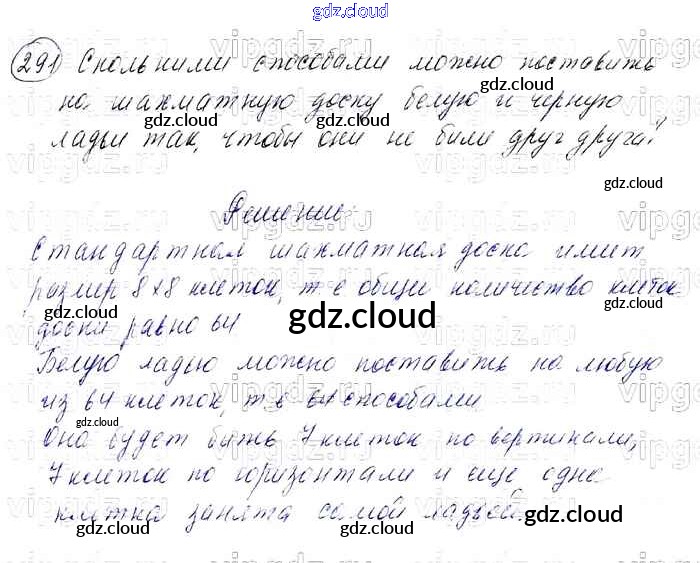 gdz.cloud
291 Сколькими способами можно поставить
на шахматную доску белую и чёрную
ладьи так, чтобы они не били друг друга?
Решение:
Стандартная шахматная доска имеет
размер 8×8 клеток, т е общее количество клеток
доски равно 64
Белую ладью можно поставить на любую
из 64 клеток, т.е 64 способами
Она будет бить 7 клеток по вертикали,
7 клеток по горизонтали и еще одна
клетка занята самой ладьей.
gdz.cloud
gdz.cloud
gdz.cloud
gdz.cloud
gdz.cloud
gdz.cloud
gdz.cloud
gdz.cloud
gdz.cloud